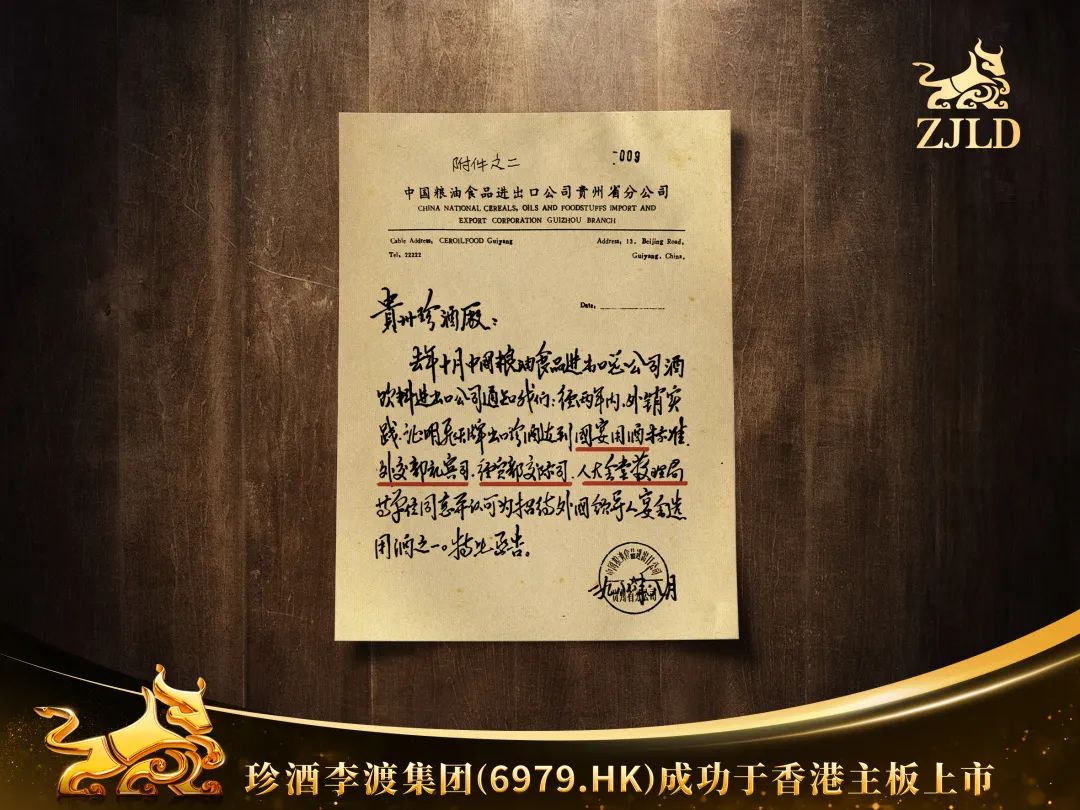 ZJLD
附件之二
009
中国粮油食品进出口公司贵州省分公司
CHINA NATIONAL CEREALS, OILS AND FOODSTUFFS IMPORT AND
EXPORT CORPORATION GUIZHOU BRANCH
Cable Address, CEROILFOOD Guiyang
Address, 13, Beijing Road,
Tel, 22222
Guiyang, China,
Date,
貴州珍酒廠：
去年十月中国粮油食品进出口总公司酒
饮料进出口公司通知我们：经两年内、外销实
践、证明飞天牌出口珍酒达到国宴用酒标准
外交部礼宾司、经贸部交际司、人大会堂管理局
等单位同意并认可为招待外国领导人宴会选
用酒之一。特此函告。
中国粮油食品进出口公司
贵州省分公司
珍酒李渡集团(6979.HK)成功于香港主板上市